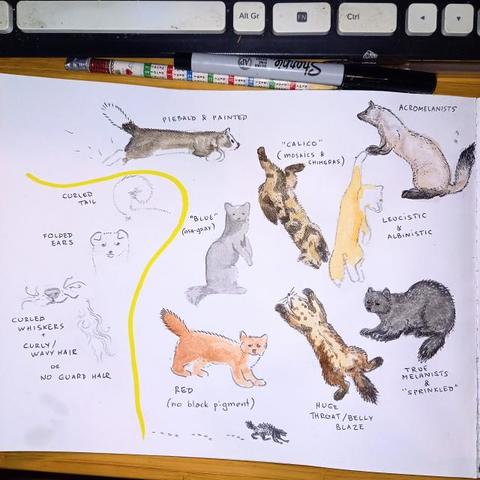 Alt Gr
FN
Ctrl
Sharpie
PIEBALD & PAINTED
ACROMELANISTS
"CALICO"
(MOSAICS &
CHIMERAS)
CURLED
TAIL
"BLUE"
(ash-gray)
LEUCISTIC
&
ALBINISTIC
FOLDED
EARS
CURLED
WHISKERS
+
CURLY/
WAVY HAIR
OR
NO GUARD HAIR
RED
(no black pigment)
HUGE
THROAT/BELLY
BLAZE
TRUE
MELANISTS
&
"SPRINKLED"